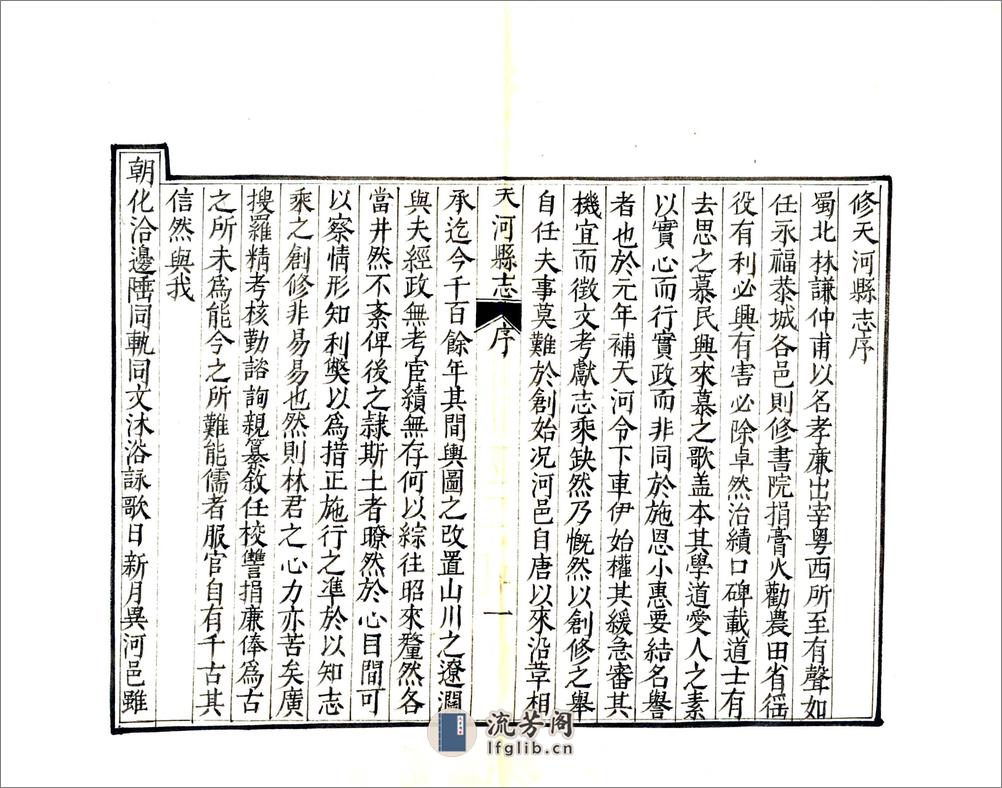 修天河縣志序
蜀北林謙仲甫以名孝廉出宰粤西所至有聲如
任永福恭城各邑則修書院捐膏火勸農田省徭
役有利必興有害必除卓然治績口碑載道士有
去思之慕民興來慕之歌盖本其學道愛人之素
以實心而行實政而非同於施恩小惠要結名譽
者也於元年補天河令下車伊始權其緩急審其
機宜而徵文考獻志乘缺然乃慨然以創修之舉
自任夫事莫難於創始况河邑自唐以來沿革相
天河縣志 序 一
承迄今千百餘年其間輿圖之改置山川之遼濶
與夫經政無考宦績無存何以綜往昭來釐然各
當井然不紊俾後之隷斯土者暸然於心目間可
以察情形知利獘以為措正施行之準於以知志
乘之創修非易易也然則林君之心力亦苦矣廣
搜羅精考核勤諮詢親纂敘任校讐捐廉俸為古
之所未為能今之所難能儒者服官自有千古其
信然與我
朝化洽邊陲同軌同文沐浴詠歌日新月異河邑雖
流芳阁
lfglib.cn